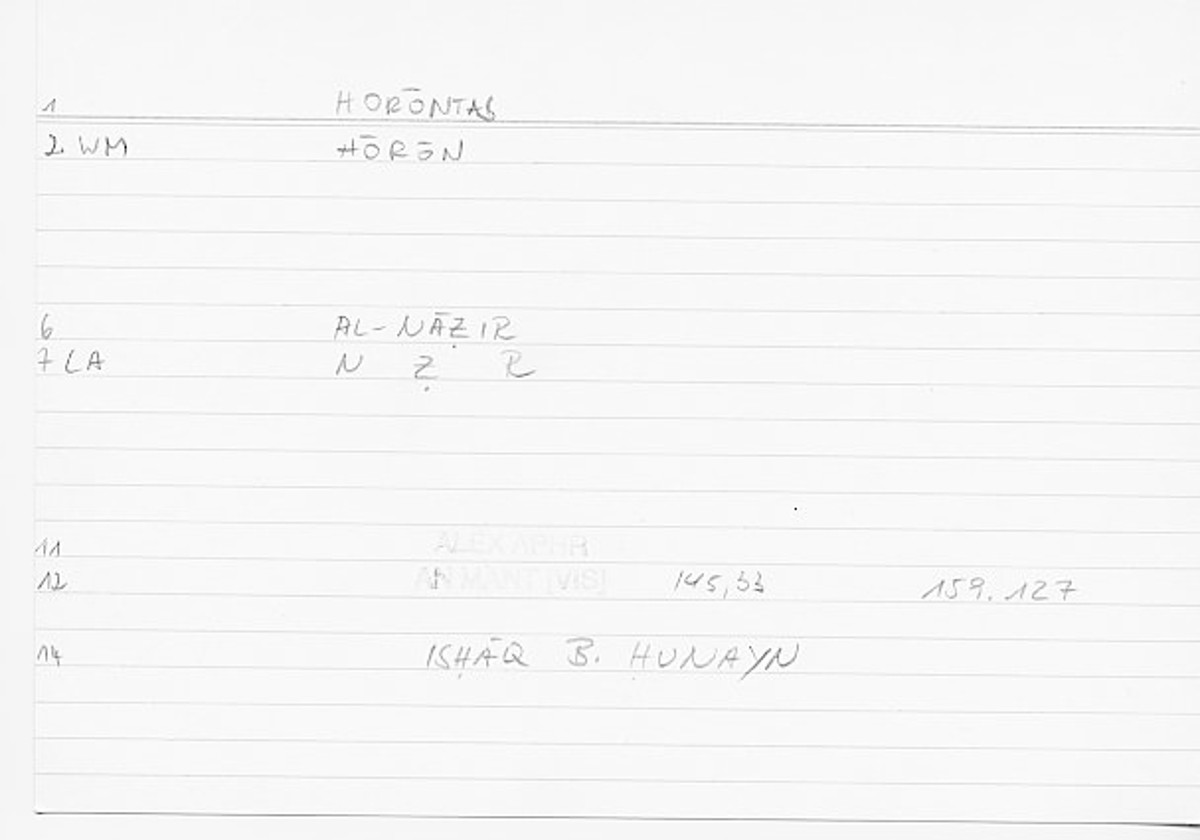 1 HORŌNTAS
2. WM HŌRŌN
6 AL-NĀẒIR
7 LA N Ẓ R
11 ALEX APHR
12 AN MANT [VIS] 145,33 159.127
14 ISḤĀQ B. ḤUNAYN